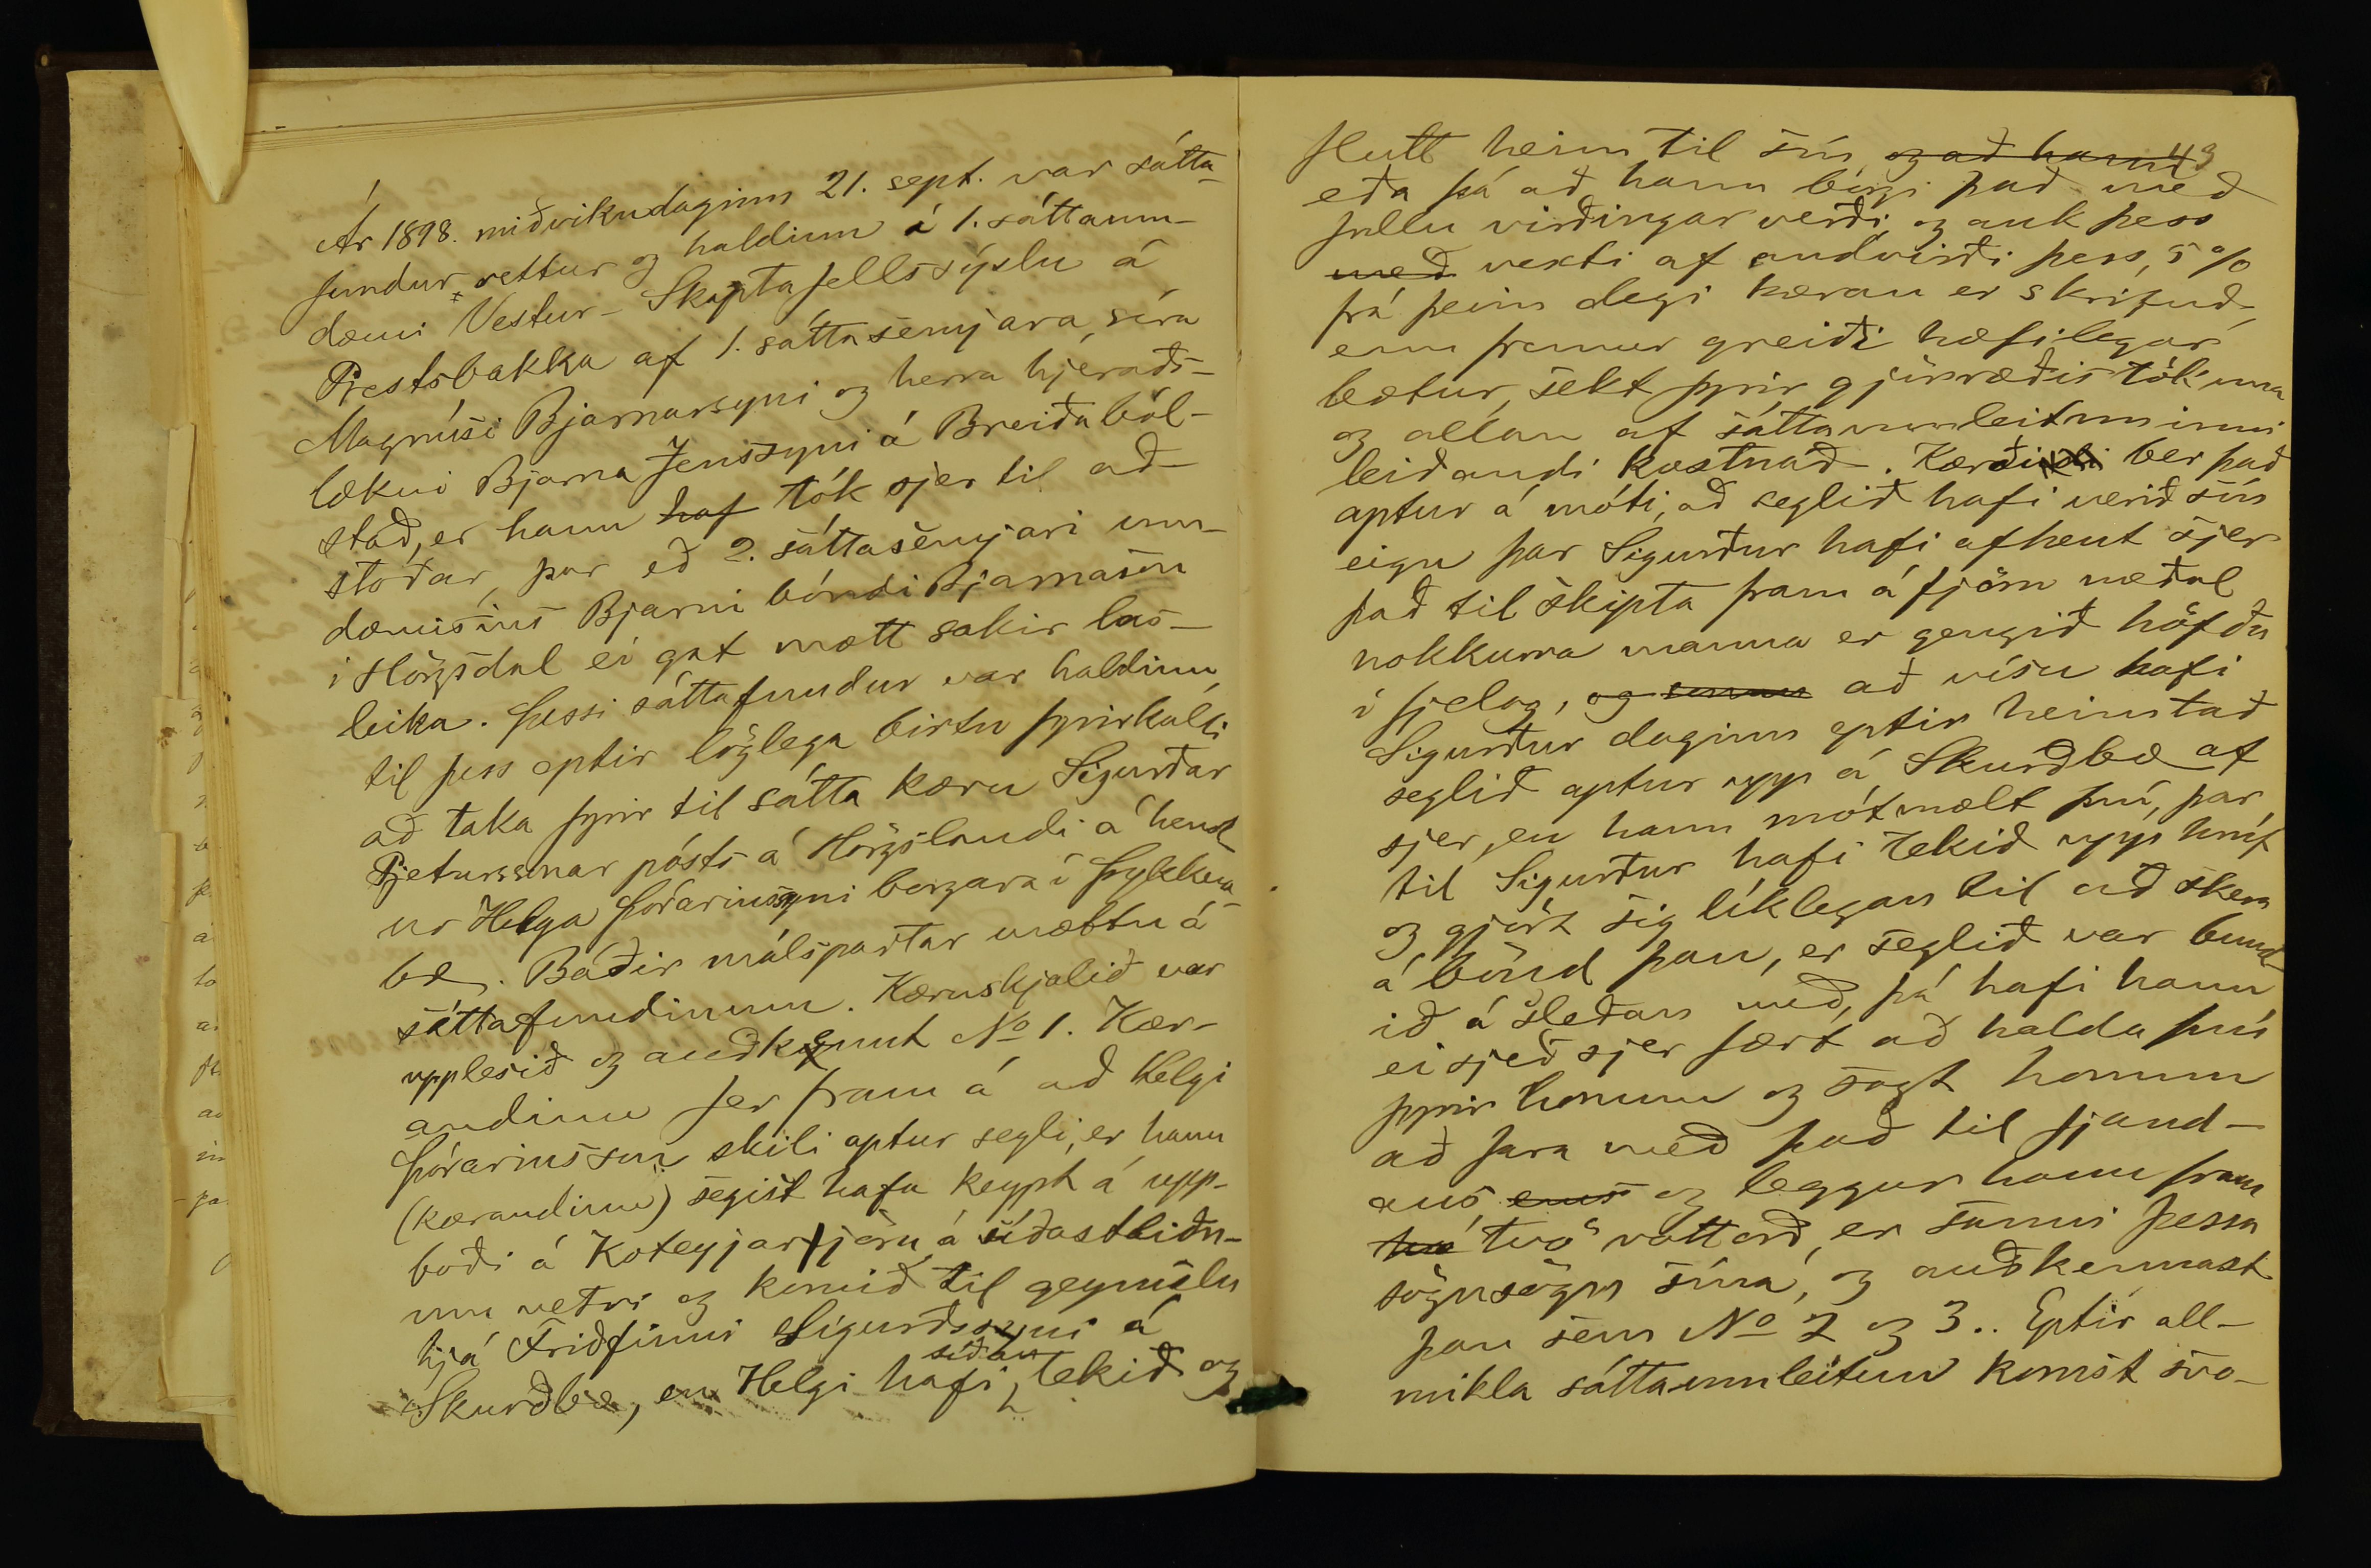 Ár 1898. miðvikudaginn 21. sept. var sátta-
fundur rettur og haldinn á 1. sáttaum-
dæmi Vestur-Skaptafellssýslu á
Prestsbakka af 1. sáttasemjara, síra
Magnúsi Bjarnarsyni og herra hjeraðs-
lækni Bjarna Jenssyni á Breiðaból-
stað, er hann haf tók sjer til að-
stoðar, þar eð 2. sáttasemjari um-
dæmisins Bjarni bóndi Bjarnason
í Hörgsdal ei gat mætt sakir las-
leika. Þessi sáttafundur var haldinn,
til þess eptir löglega birtu fyrirkalli
að taka fyrir til sátta kæru Sigurðar
Pjeturssonar pósts á Hörgslandi á hend
ur Helga Þórarinssyni borgara í Þykkva-
bæ. Báðir málspartar mættu á
sáttafundinum. Kæruskjalið var
upplesið og auðkennt No 1. Kær-
andinn fer fram á að Helgi
Þórarinsson skili aptur segli, er hann
(kærandinn) segist hafa keypt á upp-
boði á Koteyjarfjöru á síðastliðn-
um vetri og komið til geymslu
hjá Friðfinni Sigurðssyni á
síðan
Skurðbæ, en Helgi hafi tekið og
43
flutt heim til sín og að hann
eða þá að hann borgi það með
fullu virðingarverði, og auk þess
með vexti af andvirði þess, 5 %
frá þeim degi kæran er skrifuð,
enn fremur greiði hæfilegar
bætur, sekt fyrir gjörræðis tökuna
og allan af sáttaumleituninni
leiðandi kostnað. Kærði ber það
aptur á móti, að seglið hafi verið sín
eign þar Sigurður hafi afhent sjer
það til skipta fram á fjöru meðal
nokkurra manna er gengið höfðu
í fjelag, og að vísu hafi
Sigurður daginn eptir heimtað
seglið aptur upp á Skurðbæ af
sjer, en hann mótmælt því, þar
til Sigurður hafi tekið upp hníf
og gjört sig líklegan til að skera
á bönd þau, er seglið var bund-
ið á sleðan með, þá hafi hann
ei sjeð sjer fært að halda því
fyrir honum og sagt honum
að fara með það til fjand-
ans og leggur hann fram
tvö vottorð, er sanni þessa
sögusögn sína, og auðkennast
þau sem No 2 og 3.. Eptir all-
mikla sáttaumleitun komst svo-